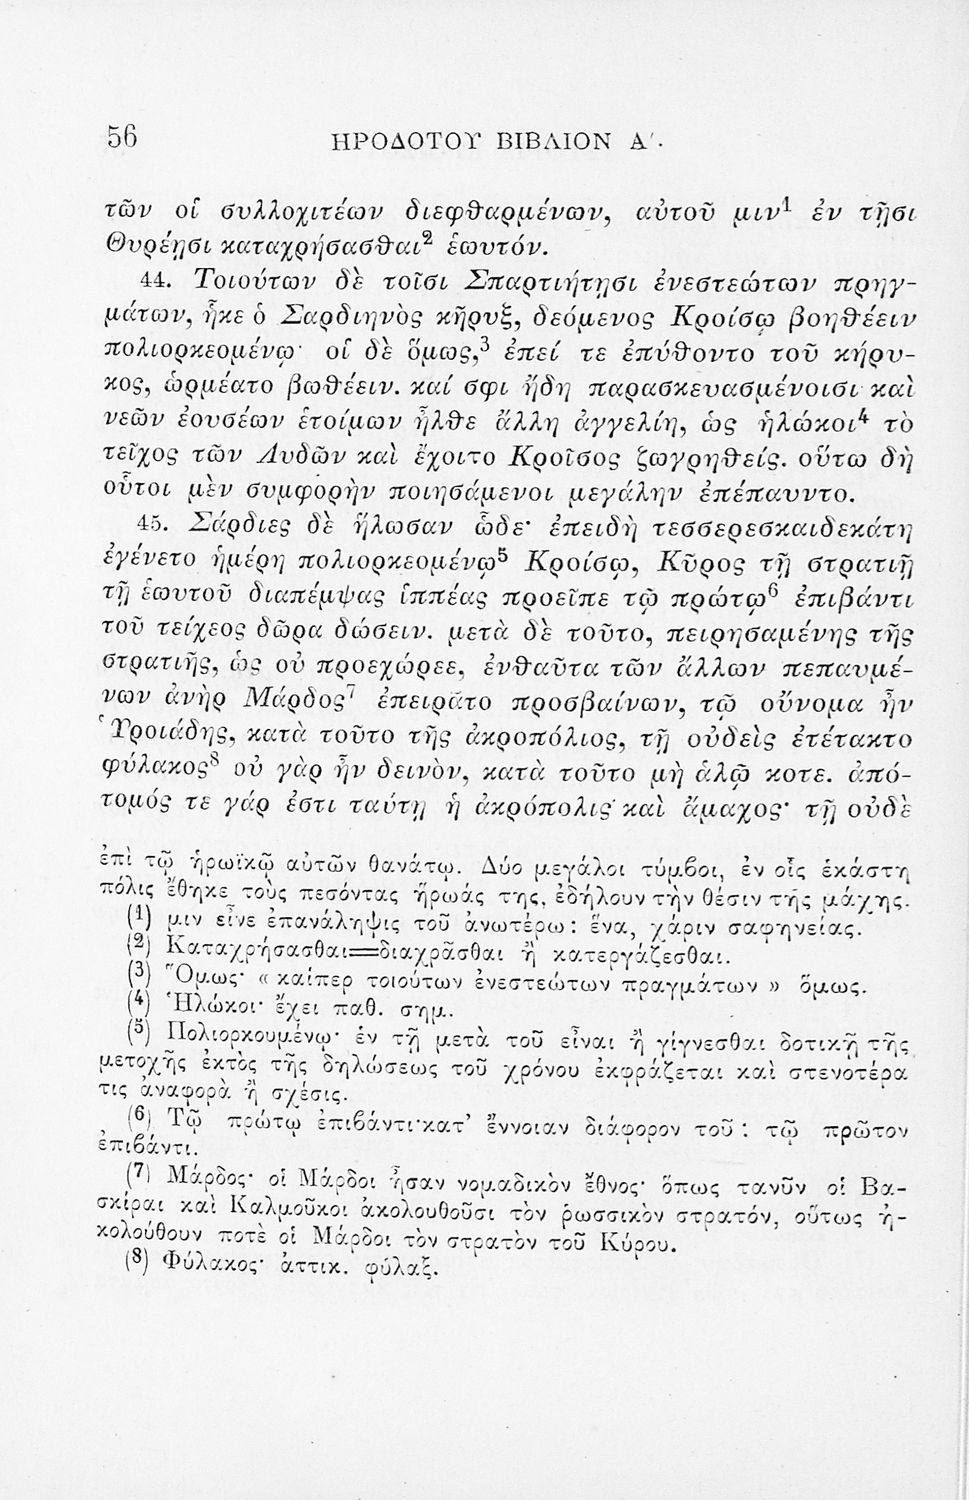 56
ΗΡΟΔΟΤΟΥ ΒΙΒΛΙΟΝ Α΄.
τῶν οἱ συλλοχιτέων διεφθαρμένων, αὐτοῦ μιν¹ ἐν τῇσι
Θυρέῃσι καταχρήσασθαι² ἑωυτόν.
44. Τοιούτων δὲ τοῖσι Σπαρτιήτῃσι ἐνεστεώτων πρηγ-
μάτων, ἧκε ὁ Σαρδιηνὸς κῆρυξ, δεόμενος Κροίσῳ βοηθέειν
πολιορκεομένῳ· οἱ δὲ ὅμως,³ ἐπεί τε ἐπύθοντο τοῦ κήρυ-
κος, ὡρμέατο βωθέειν. καί σφι ἤδη παρασκευασμένοισι καὶ
νεῶν ἐουσέων ἑτοίμων ἦλθε ἄλλη ἀγγελίη, ὡς ἡλώκοι⁴ τὸ
τεῖχος τῶν Λυδῶν καὶ ἔχοιτο Κροῖσος ζωγρηθείς. οὕτω δὴ
οὗτοι μὲν συμφορὴν ποιησάμενοι μεγάλην ἐπέπαυντο.
45. Σάρδιες δὲ ἥλωσαν ὧδε· ἐπειδὴ τεσσερεσκαιδεκάτη
ἐγένετο ἡμέρη πολιορκεομένῳ⁵ Κροίσῳ, Κῦρος τῇ στρατιῇ
τῇ ἑωυτοῦ διαπέμψας ἱππέας προεῖπε τῷ πρώτῳ⁶ ἐπιβάντι
τοῦ τείχεος δῶρα δώσειν. μετὰ δὲ τοῦτο, πειρησαμένης τῆς
στρατιῆς, ὡς οὐ προεχώρεε, ἐνθαῦτα τῶν ἄλλων πεπαυμέ-
νων ἀνὴρ Μάρδος⁷ ἐπειρᾶτο προσβαίνων, τῷ οὔνομα ἦν
Ὑροιάδης, κατὰ τοῦτο τῆς ἀκροπόλιος, τῇ οὐδεὶς ἐτέτακτο
φύλακος⁸ οὐ γὰρ ἦν δεινὸν, κατὰ τοῦτο μὴ ἁλῷ κοτε. ἀπό-
τομός τε γάρ ἐστι ταύτῃ ἡ ἀκρόπολις καὶ ἄμαχος· τῇ οὐδὲ
ἐπὶ τῷ ἡρωϊκῷ αὐτῶν θανάτῳ. Δύο μεγάλοι τύμβοι, ἐν οἷς ἑκάστη
πόλις ἔθηκε τοὺς πεσόντας ἥρωάς της, ἐδήλουν τὴν θέσιν τῆς μάχης.
(¹) μιν εἶνε ἐπανάληψις τοῦ ἀνωτέρω: ἕνα, χάριν σαφηνείας.
(²) Καταχρήσασθαι=διαχρᾶσθαι ἢ κατεργάζεσθαι.
(³) Ὅμως· « καίπερ τοιούτων ἐνεστεώτων πραγμάτων » ὅμως.
(⁴) Ἡλώκοι· ἔχει παθ. σημ.
(⁵) Πολιορκουμένῳ· ἐν τῇ μετὰ τοῦ εἶναι ἢ γίγνεσθαι δοτικῇ τῆς
μετοχῆς ἐκτὸς τῆς δηλώσεως τοῦ χρόνου ἐκφράζεται καὶ στενοτέρα
τις ἀναφορὰ ἢ σχέσις.
(⁶) Τῷ πρώτῳ ἐπιβάντι· κατ’ ἔννοιαν διάφορον τοῦ: τῷ πρῶτον
ἐπιβάντι.
(⁷) Μάρδος· οἱ Μάρδοι ἦσαν νομαδικὸν ἔθνος· ὅπως τανῦν οἱ Βα-
σκίραι καὶ Καλμοῦκοι ἀκολουθοῦσι τὸν ῥωσσικὸν στρατόν, οὕτως ἠ-
κολούθουν ποτὲ οἱ Μάρδοι τὸν στρατὸν τοῦ Κύρου.
(⁸) Φύλακος· ἀττικ. φύλαξ.